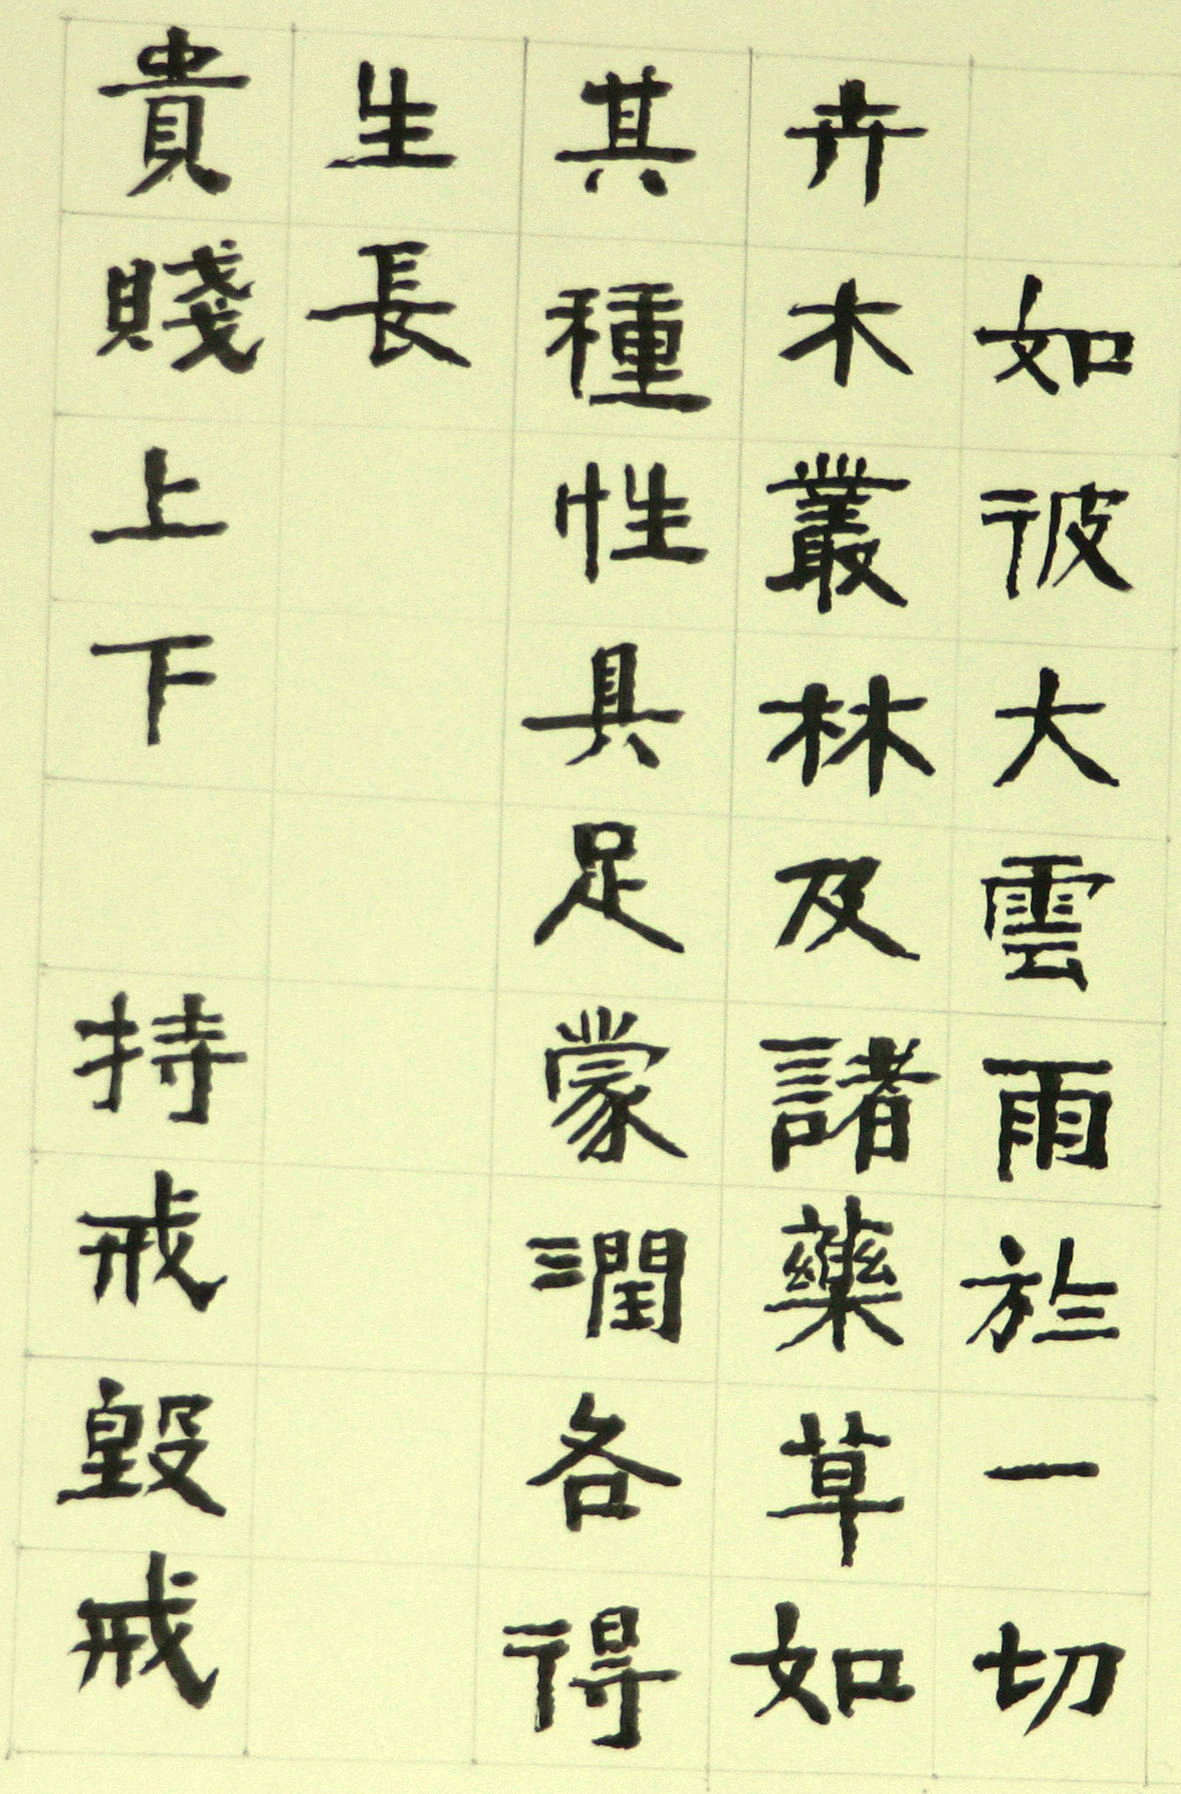 如彼大雲雨於一切
卉木叢林及諸藥草如
其種性具足蒙潤各得
生長
貴賤上下 持戒毀戒